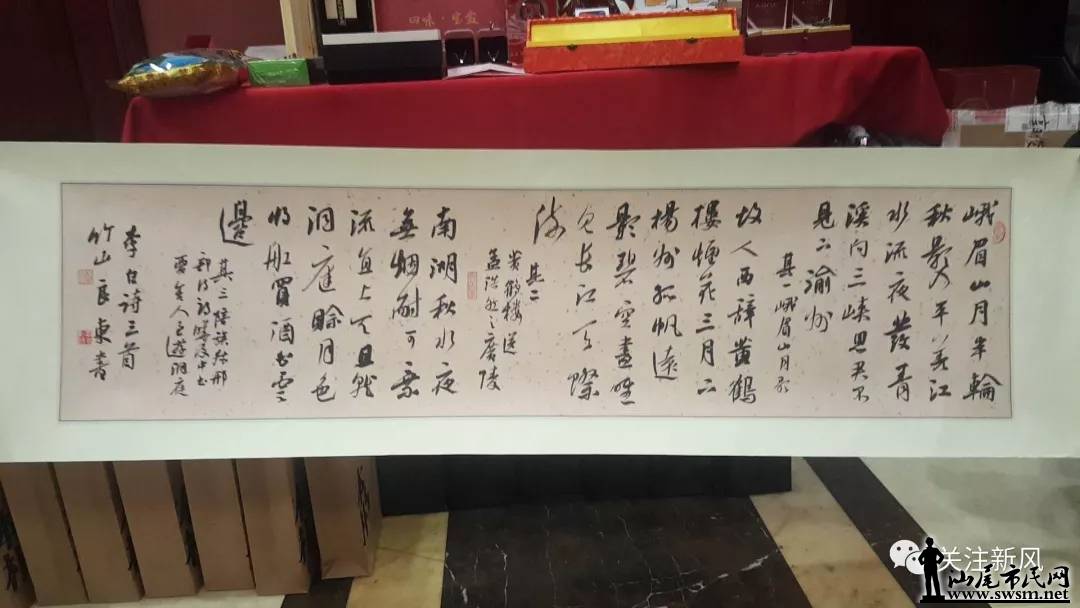 峨眉山月半輪
秋影入平羌江
水流夜發青
溪向三峽思君不
見下渝州
其一峨眉山月歌
故人西辭黄鶴
樓煙花三月下
楊州孤帆遠
影碧空盡唯
見長江天際
流
其二
黄鹤楼送
孟浩然之廣陵
南湖秋水夜
無烟耐可乘
流直上天且就
洞庭賒月色
将船買酒白雲
邊
其三陪族叔刑
部侍郎曄及中书
賈舍人至遊洞庭
李白诗三首
竹山良東書
关注新风
汕尾市民网
www.swsm.net